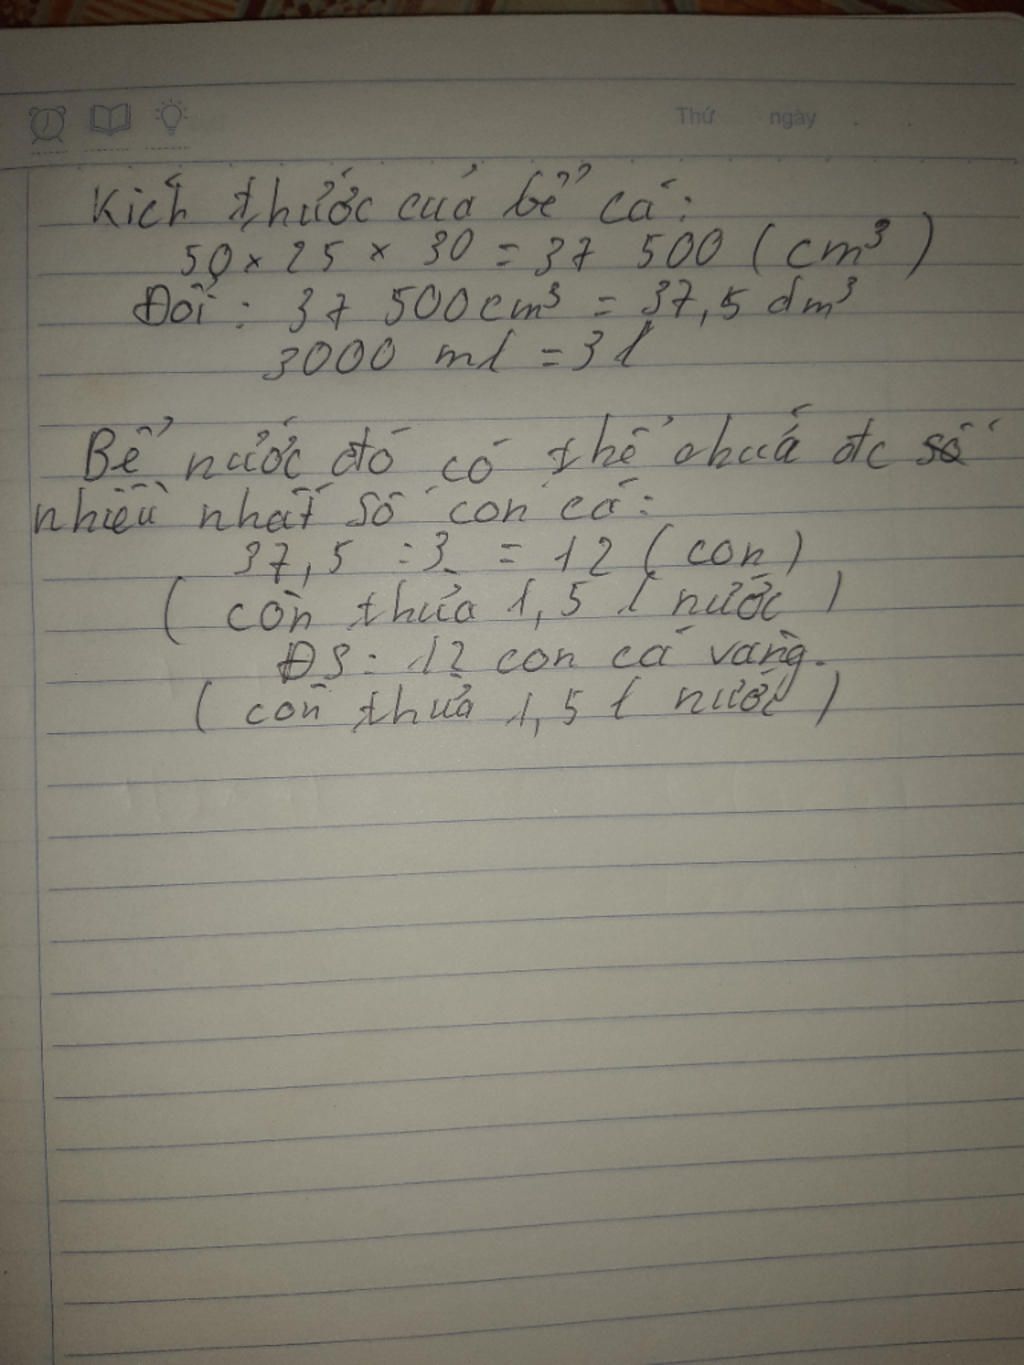 Thứ ngày
Kích thước của bể cá:
50 × 25 × 30 = 37 500 (cm³)
Đổi: 37 500 cm³ = 37,5 dm³
3000 ml = 3 l
Bể nước đó có thể chứa đc số
nhiều nhất số con cá:
37,5 : 3 = 12 (con)
(còn thừa 1,5 l nước)
ĐS: 12 con cá vàng.
(còn thừa 1,5 l nước)